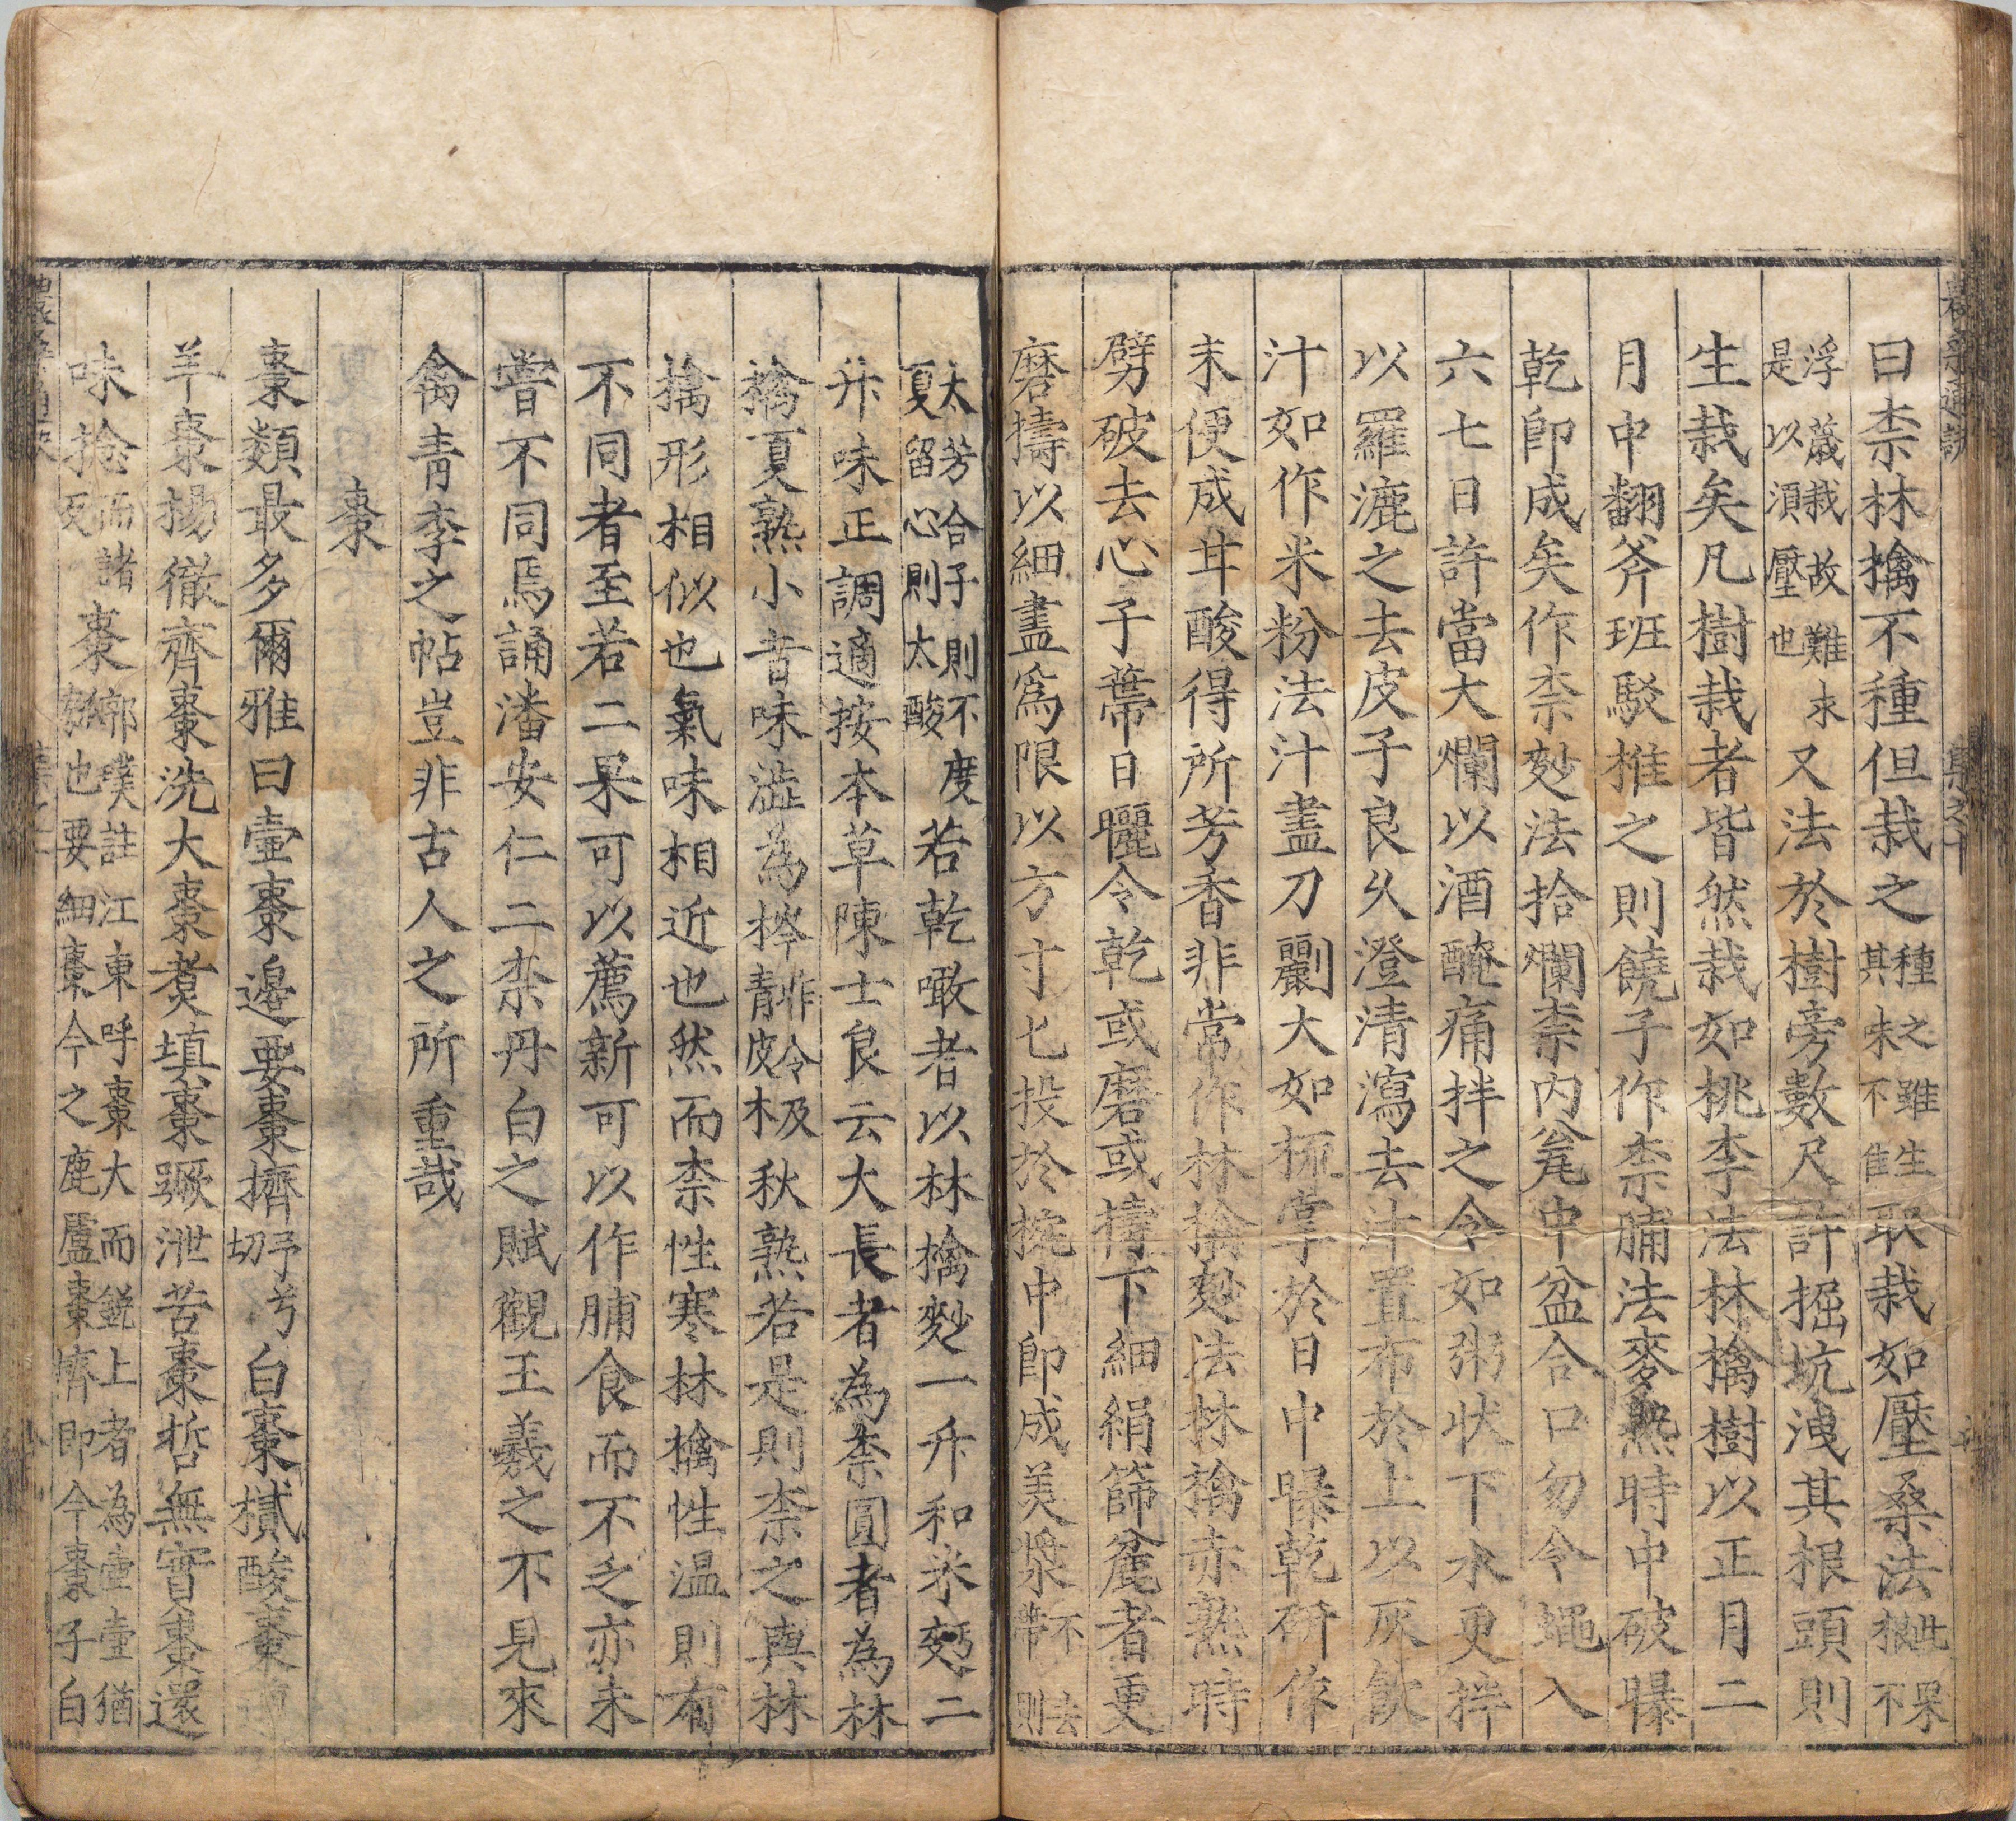 曰柰林檎不種但栽之種之雖生其味不佳取栽如壓桑法此果根不
浮薉栽故難求是以須壓也又法於樹旁數尺許掘坑洩其根頭則
生栽矣凡樹栽者皆然栽如桃李法林檎樹以正月二
月中翻斧班駁推之則饒子作柰脯法麥熟時中破曝
乾即成矣作柰麨法拾爛柰內瓮中盆合口勿令蠅入
六七日許當大爛以酒醃痛拌之令如粥狀下水更拌
以羅漉之去皮子良久澄清瀉去汁置布於上以灰飲
汁如作米粉法汁盡刀劚大如梳掌於日中曝乾研作
末便成甘酸得所芳香非常作林檎麨法林檎赤熟時
劈破去心子蔕日曬令乾或磨或擣下細絹篩麄者更
磨擣以細盡爲限以方寸匕投於椀中即成美漿不去帶則
太芳合子則不度夏留心則太酸若乾噉者以林檎麨一升和米麪二
升味正調適按本草陳士良云大長者為柰圓者為林
檎夏熟小者味澁為梣非冷青皮木及秋熟若是則柰之與林
檎形相似也氣味相近也然而柰性寒林檎性温則有
不同者至若二果可以薦新可以作脯食而不乏亦未
嘗不同焉誦潘安仁二柰丹白之賦觀王羲之不見來
禽青李之帖豈非古人之所重哉
棗
棗類最多爾雅曰壷棗邊要棗擠子兮切白棗樲酸棗遵
羊棗楊徹齊棗洗大棗煮填棗蹶泄苦棗晢無實棗還
味捻而諸死棗郭璞註江東呼棗大而銳上者為壷壷猶瓠也要細棗今之鹿盧棗擠即今棗子白